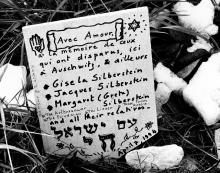 Avec Amour,
à la mémoire de ceux
qui ont disparus, ici
à Auschwitz, & ailleurs
Gisela Silberstein
Jacques Silberstein
Margaret (Greta)
Silberstein
and all their relations
עם ישראל
חי
April